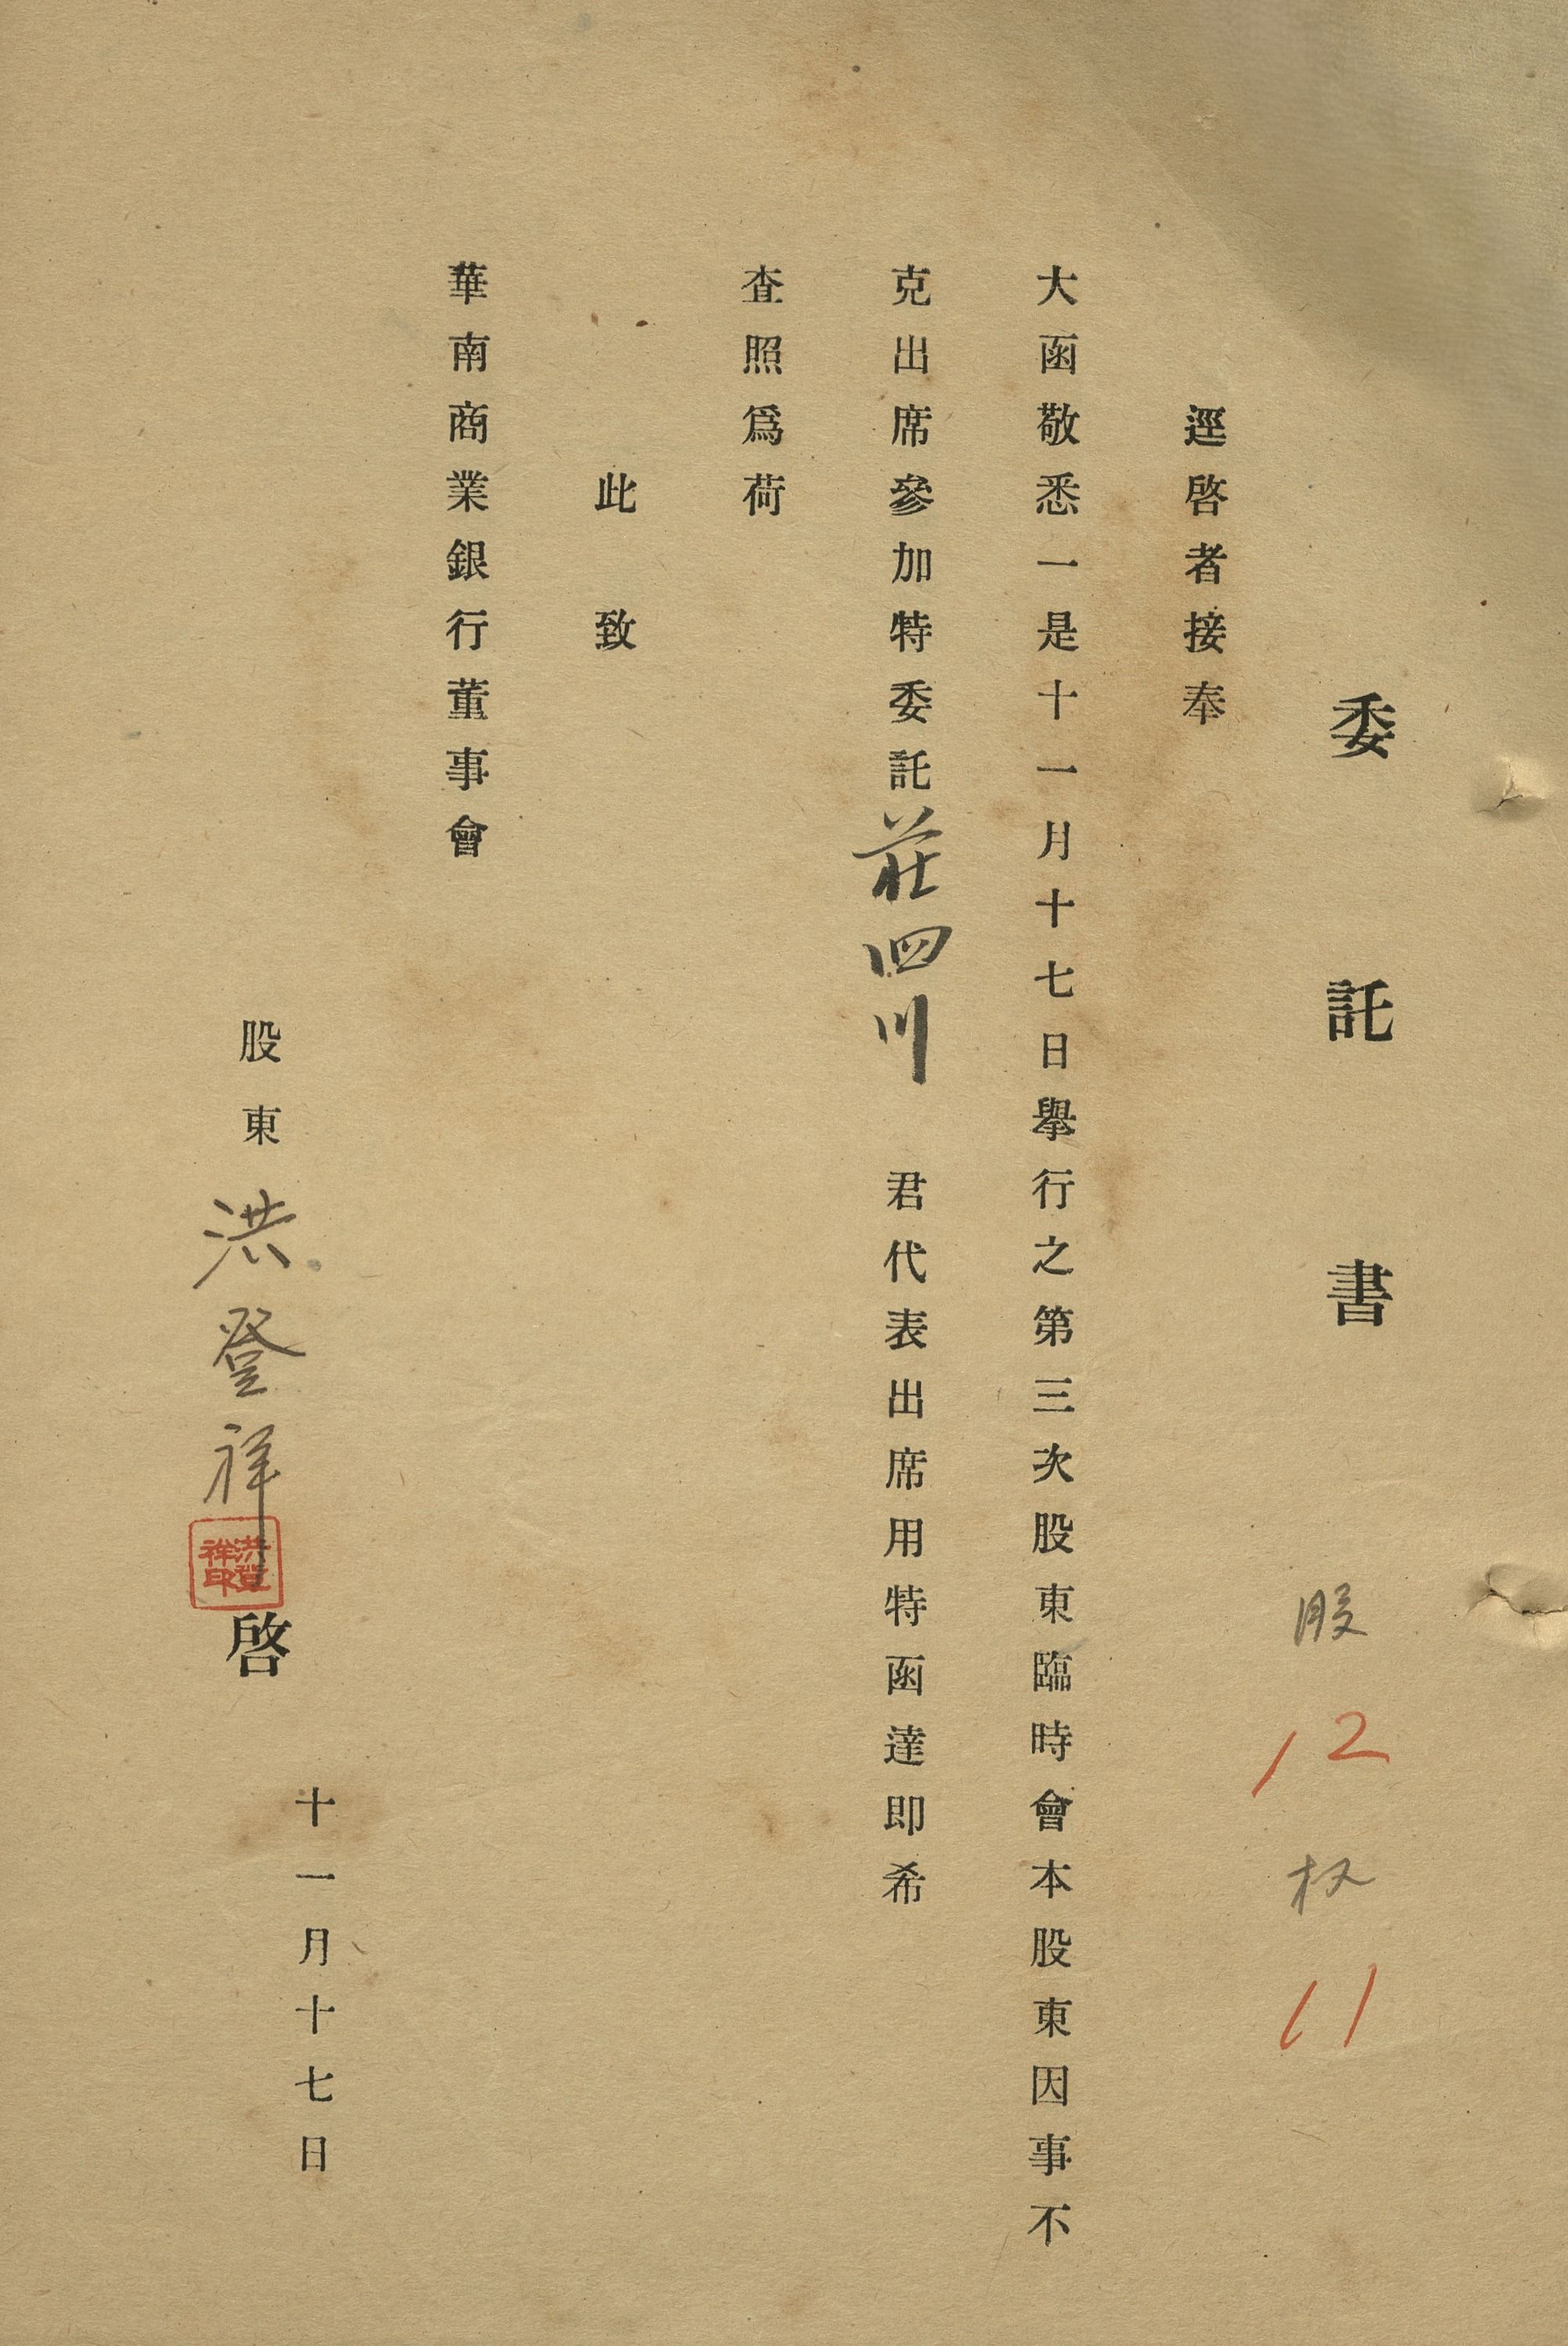 委託書
股12权11
逕啓者接奉
大函敬悉一是十一月十七日舉行之第三次股東臨時會本股東因事不
克出席參加特委託莊四川君代表出席用特函達即希
查照爲荷
此致
華南商業銀行董事會
十一月十七日
股東洪登祥啓
洪登祥印